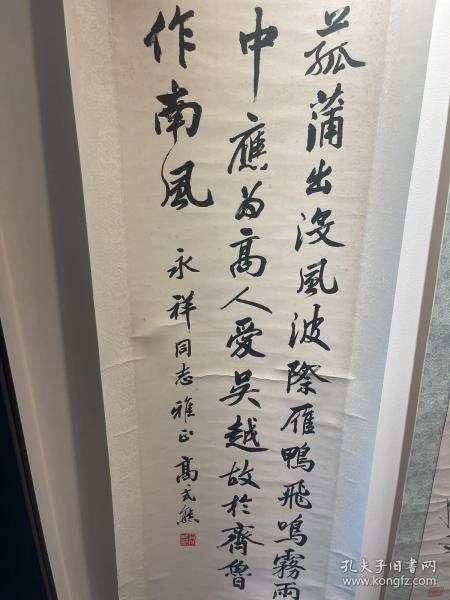 菰蒲出没風波際雁鴨飛鳴霧雨
中應為高人愛吳越故於齊魯
作南風
永祥同志雅正
高式熊
孔夫子旧书网
www.kongfz.com